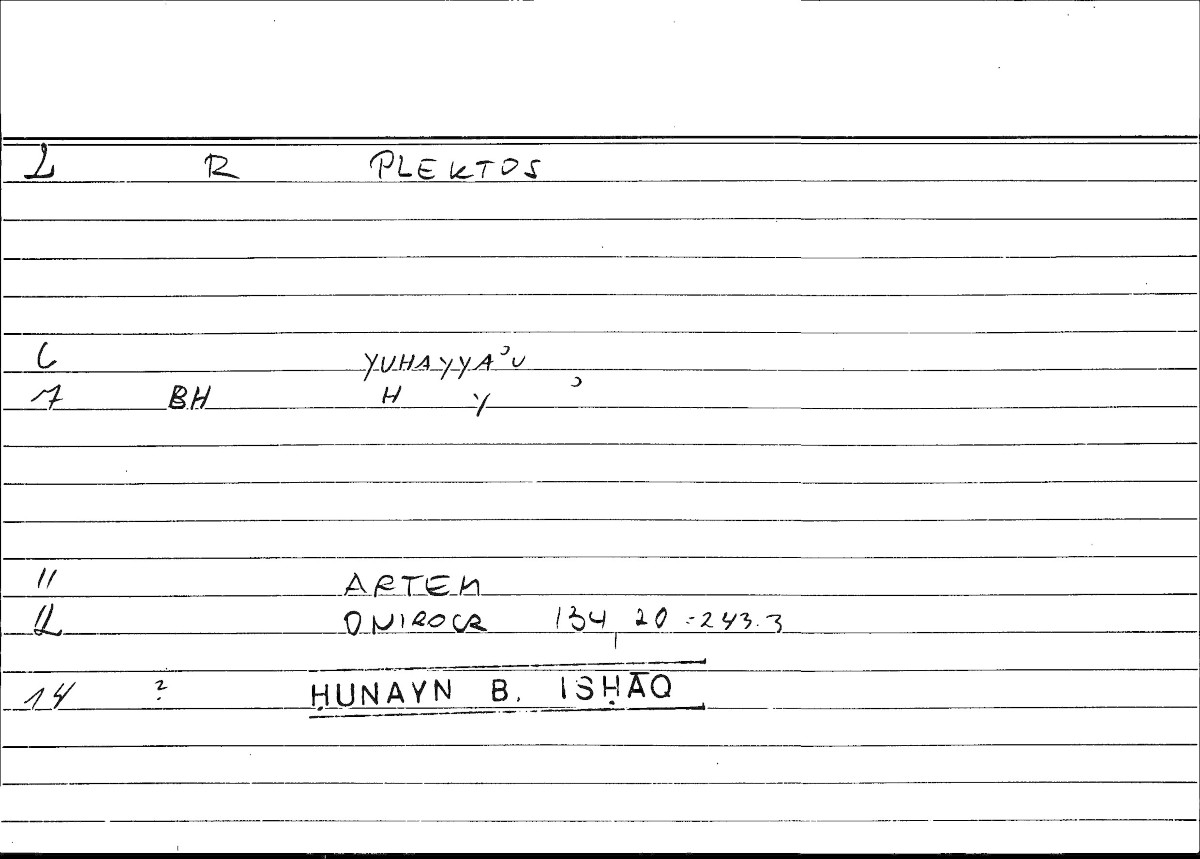 2 R PLEKTOS
6 YUHAYYAʾU
7 BH H Y ʾ
11 ARTEM
12 ONIROCR 134, 20 - 243.3
14 ? ḤUNAYN B. ISḤĀQ